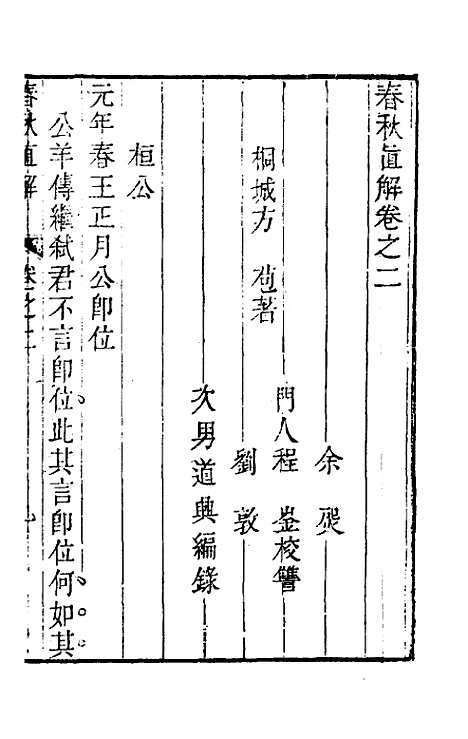 春秋直解卷之二
桐城方 苞著
余 熙
門人程 崟校讐
劉 敦
次男道興編錄
桓公
元年春王正月公卽位
公羊傳繼弑君不言卽位此其言卽位何如其
春秋直解 卷之二